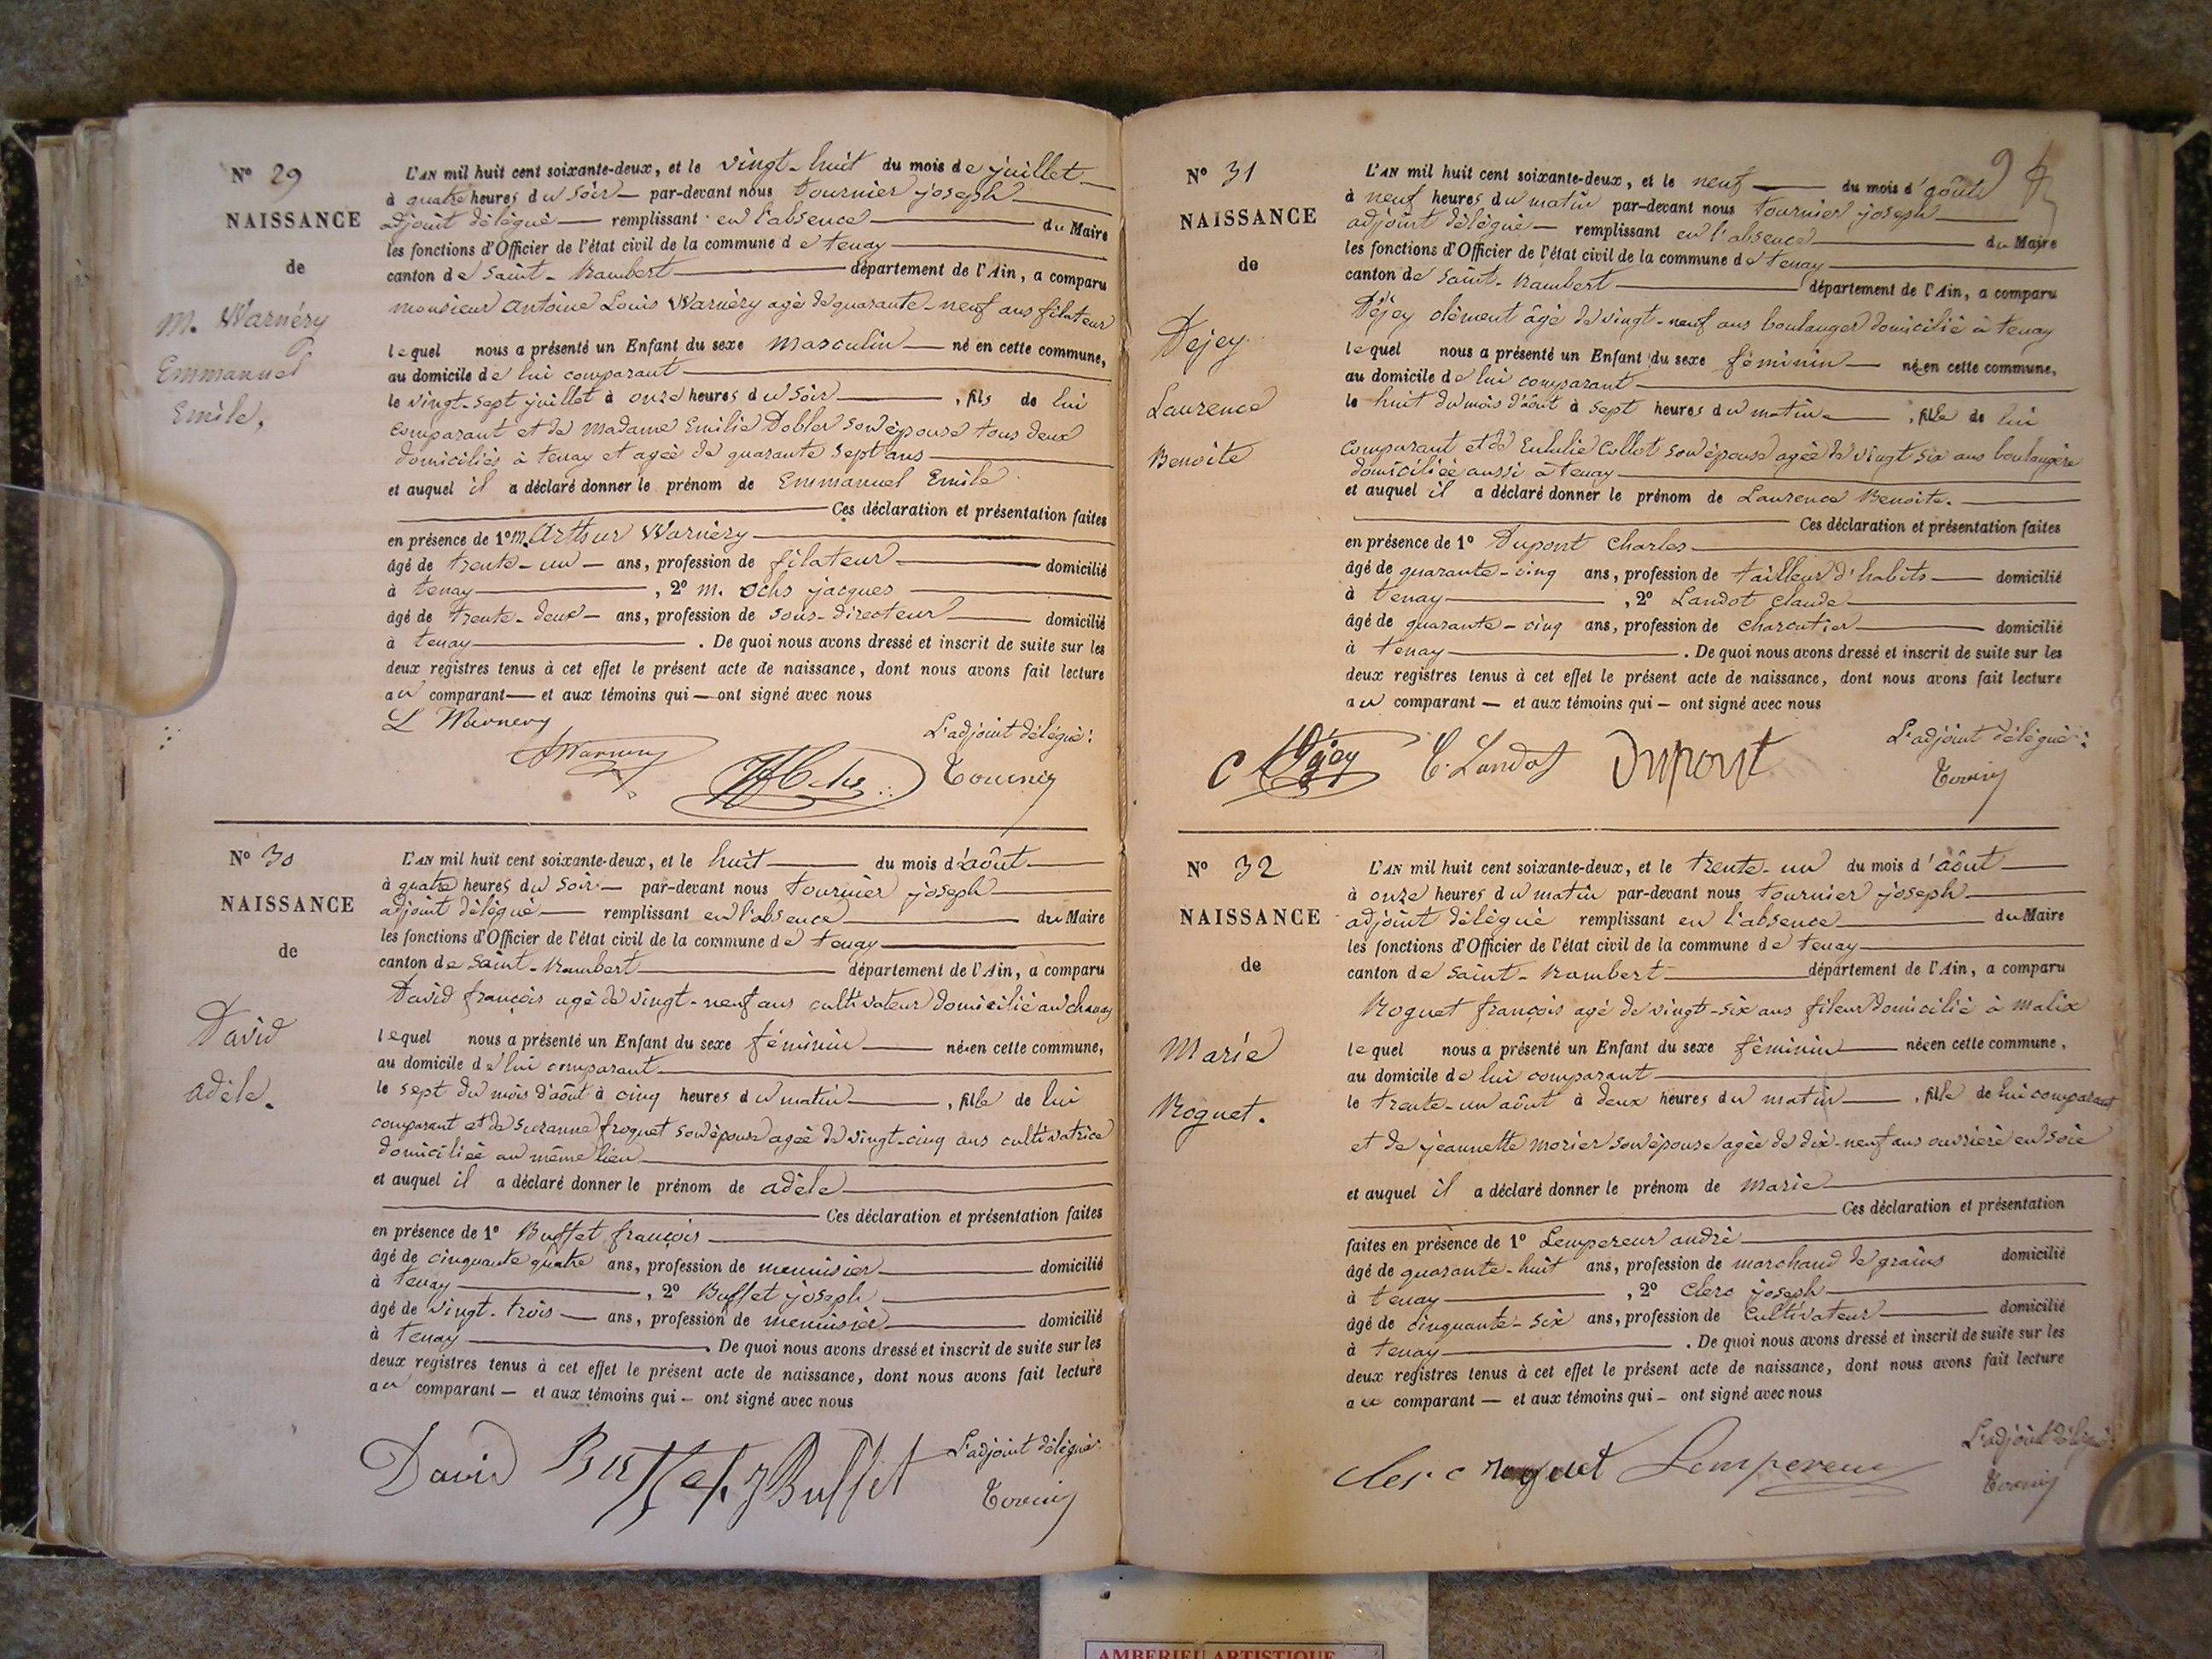 N° 29
NAISSANCE
de
M. Warnéry
Emmanuel
Emile.
L'AN mil huit cent soixante-deux, et le vingt-huit du mois de juillet
à quatre heures du soir par-devant nous tournier joseph
adjoint délégué remplissant en l'absence du Maire
les fonctions d'Officier de l'état civil de la commune de tenay
canton de saint-Rambert département de l'Ain, a comparu
monsieur Antoine Louis Warnéry agé de quarante-neuf ans filateur
lequel nous a présenté un Enfant du sexe masculin né en cette commune,
au domicile de lui comparant
le vingt-sept juillet à onze heures du soir, fils de lui
comparant et de madame Emilie Dobler son épouse tous deux
domiciliés à tenay et agée de quarante sept ans
et auquel il a déclaré donner le prénom de Emmanuel Emile
Ces déclaration et présentation faites
en présence de 1° m. Arthur Warnéry
âgé de trente-un ans, profession de filateur domicilié
à tenay, 2° m. ochs jacques
âgé de trente-deux ans, profession de sous-directeur domicilié
à tenay. De quoi nous avons dressé et inscrit de suite sur les
deux registres tenus à cet effet le présent acte de naissance, dont nous avons fait lecture
au comparant et aux témoins qui ont signé avec nous
L Warnery
L'adjoint délégué:
AWarnery
Tournier
N° 30
NAISSANCE
de
David
adèle.
L'AN mil huit cent soixante-deux, et le huit du mois d'août
à quatre heures du soir par-devant nous tournier joseph
adjoint délégué remplissant en l'absence du Maire
les fonctions d'Officier de l'état civil de la commune de tenay
canton de saint-Rambert département de l'Ain, a comparu
David françois agé de vingt-neuf ans cultivateur domicilié au chanay
lequel nous a présenté un Enfant du sexe féminin née en cette commune,
au domicile de lui comparant
le sept du mois d'août à cinq heures du matin, fille de lui
comparant et de suzanne froquet son épouse agée de vingt-cinq ans cultivatrice
domiciliée au même lieu
et auquel il a déclaré donner le prénom de adèle
Ces déclaration et présentation faites
en présence de 1° Buffet françois
âgé de cinquante quatre ans, profession de menuisier domicilié
à tenay, 2° Buffet joseph
âgé de vingt-trois ans, profession de menuisier domicilié
à tenay. De quoi nous avons dressé et inscrit de suite sur les
deux registres tenus à cet effet le présent acte de naissance, dont nous avons fait lecture
au comparant et aux témoins qui ont signé avec nous
David Buffet J Buffet L'adjoint délégué
Tournier
N° 31
NAISSANCE
de
Dejey
Laurence
Benoite
L'AN mil huit cent soixante-deux, et le neuf du mois d'août
à neuf heures du matin par-devant nous tournier joseph
adjoint délégué remplissant en l'absence du Maire
les fonctions d'Officier de l'état civil de la commune de tenay
canton de saint-Rambert département de l'Ain, a comparu
Déjey clément âgé de vingt-neuf ans boulanger domicilié à tenay
lequel nous a présenté un Enfant du sexe féminin née en cette commune,
au domicile de lui comparant
le huit du mois d'août à sept heures du matin, fille de lui
comparant et de Eulalie Collot son épouse agée de vingt six ans boulangère
domiciliée aussi à tenay
et auquel il a déclaré donner le prénom de Laurence Benoite.
Ces déclaration et présentation faites
en présence de 1° Dupont Charles
âgé de quarante-cinq ans, profession de tailleur d'habits domicilié
à tenay, 2° Landot claude
âgé de quarante-cinq ans, profession de charcutier domicilié
à tenay. De quoi nous avons dressé et inscrit de suite sur les
deux registres tenus à cet effet le présent acte de naissance, dont nous avons fait lecture
au comparant et aux témoins qui ont signé avec nous
L'adjoint délégué:
C Dejey C. Landot Dupont
Tournier
N° 32
NAISSANCE
de
Marie
Roguet.
L'AN mil huit cent soixante-deux, et le trente-un du mois d'août
à onze heures du matin par-devant nous tournier joseph
adjoint délégué remplissant en l'absence du Maire
les fonctions d'Officier de l'état civil de la commune de tenay
canton de saint-Rambert département de l'Ain, a comparu
Roguet françois agé de vingt-six ans fileur domicilié à malix
lequel nous a présenté un Enfant du sexe féminin née en cette commune,
au domicile de lui comparant
le trente-un août à deux heures du matin, fille de lui comparant
et de jeannette morier son épouse agée de dix-neuf ans ouvrière en soie
et auquel il a déclaré donner le prénom de marie
Ces déclaration et présentation
faites en présence de 1° Lempereur andré
âgé de quarante-huit ans, profession de marchand de grains domicilié
à tenay, 2° Clerc joseph
âgé de cinquante-six ans, profession de cultivateur domicilié
à tenay. De quoi nous avons dressé et inscrit de suite sur les
deux registres tenus à cet effet le présent acte de naissance, dont nous avons fait lecture
au comparant et aux témoins qui ont signé avec nous
L'adjoint délégué
Clerc roguet Lempereur
Tournier
AMBERIEU ARTISTIQUE